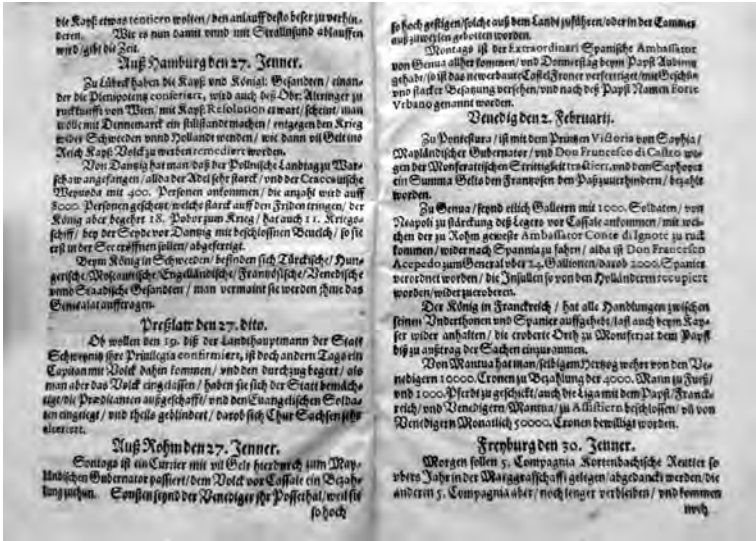 die Kayß etwas tentiern wolten / den anlauff desto besser zu verhin-
deren. Wie es nun damit vnnd mit Stralsund ablauffen
wird / gibt die Zeit.
Auß Hamburg den 27. Jenner.
Zu Lübeck haben die Kayß vnd Königl: Gesandten / einan-
der die Plenipotentz conferiert, wird auch deß Obr: Altringer zu
ruckkunfft von Wien / mit Kayß Resolution erwart / scheint / man
wolle mit Dennemarck ein stillstandt machen / entgegen den Krieg
wider Schweden vnnd Holland wenden / wie dann vil Gelt ins
Reich Kayß Volck zu werben remediert worden.
Von Dantzig hat man / daß der Pollnische Landtag zu War-
schaw angefangen / allda der Adel sehr starck / vnd der Cracovische
Weywoda mit 400. Personen ankommen / die anzahl wird auff
8000. Personen geschetzt, welche starck auff den Friden tringen / der
König aber begehrt 18. Pobor zum Krieg / hat auch 11. Kriegs-
schiff / bey der Seyde vor Dantzig mit beschlossnen Bevelch / so sie
erst in der See eröffnen sollen / abgefertigt.
Beym König in Schweden / befinden sich Türckische / Hun-
gerische / Moscawische / Engelländische / Frantzösische / Venedische
vnnd Staadische Gesandten / man vermaint sie werden ihme das
Generalat aufftragen.
Preßlaw den 27. dito.
Ob wollen den 19. diß der Landtshauptmann der Statt
Schweynitz ihre Privilegia confirmiert, ist doch andern Tags ein
Capitan mit Volck dahin kommen / vnd den durchzug begert / als
man aber das Volck eingelassen / haben sie sich der Statt bemäch-
tigt / die Prædicanten außgeschafft / vnd den Evangelischen Solda-
ten eingelegt / vnd theils geblindert / darob sich Chur Sachsen sehr
alteriert.
Auß Rohm den 27. Jenner.
Sontags ist ein Currier mit vil Gelt hierdurch zum May-
ländischen Gubernator passiert / dem Volck vor Cassale ein Bezah-
lung zuthun. Sonsten seynd der Venediger ihr Posten hat, weil sie
so hoch
so hoch gestigen / solche auß dem Lande zuführen / oder in der Cammer
außzuwexlen gebotten worden.
Montags ist der Extraordinari Spanische Ambassator
von Genua allher kommen / vnd Donnerstag beym Papst Audientz
gehabt / so ist das newerbaute Castel Froner verfertiget / mit Geschütz
vnd starcker Besatzung versehen / vnd nach deß Papst Namen Forte
Vrbano genannt worden.
Venedig den 2. Februarij.
Zu Pontestura / ist mit dem Printzen Victoria von Saphia /
Mayländischer Gubernator / vnd Don Francesco di Castro we-
gen der Monferatischen Strittigkeit tractiert, vnd dem Saphoyer
ein Summa Gelts den Frantzosen den Paß zuverhindern / bezahlt
worden.
Zu Genua / seynd etlich Galleern mit 1000. Soldaten / von
Neapoli zu stärckung deß Legers vor Cassale ankommen / mit wel-
chen der zu Rohm geweste Ambassator Conte di Ignote zu ruck
kommen / wider nach Spannia zu fahren / alda ist Don Francesco
Acepedo zum General vber 24. Gallionen / darob 2000. Spanier
verordnet worden / die Insullen so von den Holländern occupiert
worden / wider zu eroberen.
Der König in Franckreich / hat alle Handlungen zwischen
seinen Vnderthonen vnd Spanier auffgehebt / last auch beym Kay-
ser wider anhalten / die eroberte Orth zu Monferrat dem Papst
biß zu außtrag der Sachen einzuraumen.
Von Mantua hat man / selbigem Hertzog weher von den Ve-
nedigern 10000. Cronen zu Bezahlung der 4000. Mann zu Fuß /
vnd 1000. Pferdt zu geschickt / auch die Liga mit dem Papst / Franck-
reich / vnd Venedigern / Mantua / zu Assistiern beschlossen / vñ von
Venedigern Monatlich 50000. Cronen bewilligt worden.
Freyburg den 30. Jenner.
Morgen sollen 5. Compagnia Kortenbachische Reutter so
vbers Jahr in der Marggraffschafft gelegen / abgedanckt werden / die
anderen 5. Compagnia aber / noch lenger verbleiben / vnd kommen